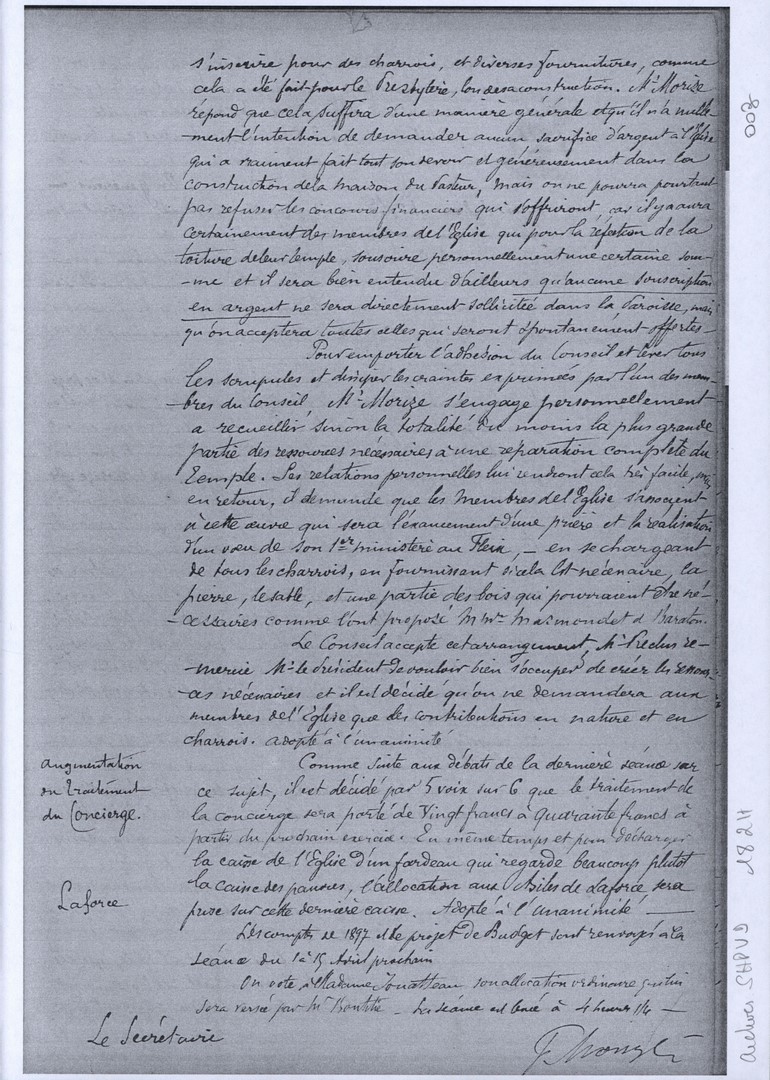 s'inscrire pour des charrois, et diverses fournitures, comme
cela a été fait pour le Presbytère, lors de sa construction. Mr Morize
répond que cela suffira d'une manière générale et qu'il n'a nulle-
ment l'intention de demander aucun sacrifice d'argent à l'Eglise
qui a vraiment fait tout son devoir et généreusement dans la
construction de la maison du Pasteur, mais on ne pourra pourtant
pas refuser les concours financiers qui s'offriront, car il y aura
certainement des membres de l'Eglise qui pour la réfection de la
toiture de leur temple, souscrire personnellement une certaine som-
-me et il sera bien entendu d'ailleurs qu'aucune souscription
en argent ne sera directement sollicitée dans la Paroisse, mais
qu'on acceptera toutes celles qui seront spontanément offertes
Pour emporter l'adhésion du Conseil et lever tous
les scrupules et dissiper les craintes exprimées par l'un des mem-
-bres du Conseil, Mr Morize s'engage personnellement
a recueillir sinon la totalité du moins la plus grande
partie des ressources nécessaires à une réparation complète du
Temple. Ses relations personnelles lui rendront cela très facile, mais
en retour, il demande que les membres de l'Eglise s'associent
à cette œuvre qui sera l'exaucement d'une prière et la réalisation
d'un vœu de son 1er ministère au Fleix, - en se chargeant
de tous les charrois, en fournissant si cela est nécessaire, la
pierre, le sable, et une partie des bois qui pourraient être né-
-cessaires comme l'ont proposé Mmrs Marmondet et Baraton.
Le Conseil accepte cet arrangement, Mr Reclus re-
mercie Mr le Président de vouloir bien s'occuper de créer les ressour-
-ces nécessaires et il est décidé qu'on ne demandera aux
membres de l'Eglise que des contributions en nature et en
charrois. adopté à l'unanimité
augmentation
du traitement
du Concierge.
Comme suite aux débats de la dernière séance sur
ce sujet, il est décidé par 5 voix sur 6 que le traitement de
la concierge sera porté de Vingt francs à quarante francs à
partir du prochain exercice. En même temps et pour décharger
la caisse de l'Eglise d'un fardeau qui regarde beaucoup plutôt
Laforce
la caisse des pauvres, l'allocation aux Asiles de Laforce sera
prise sur cette dernière caisse. Adopté à l'Unanimité
Les comptes de 1897 et le projet de Budget sont renvoyés à la
séance du 1 à 15 Avril prochain
On vote à Madame son allocation ordinaire qui lui
sera versée par Mr La séance est levée à 4 heures 1/4
Le Secrétaire
008
Archives SHPVD 1824